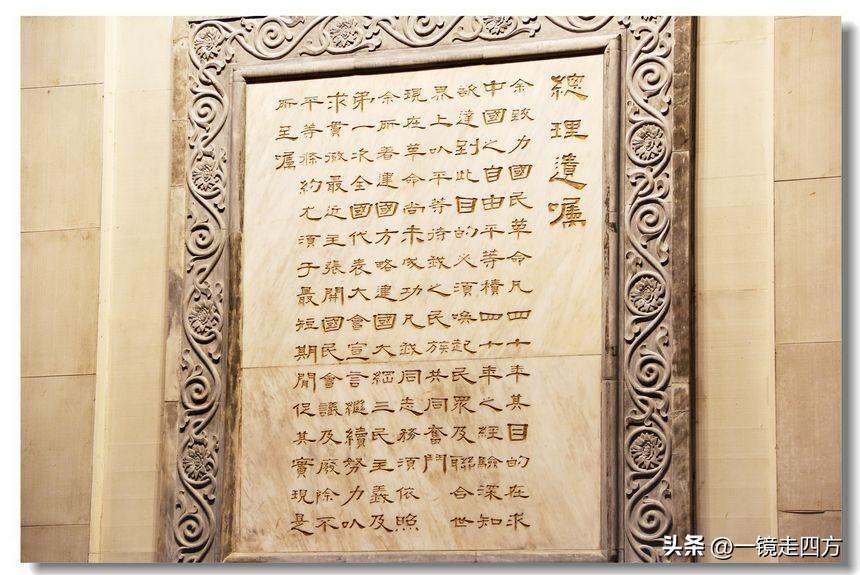 總理遺囑
余致力國民革命凡四十年其目的在求
中國之自由平等積四十年之經驗深知
欲達到此目的必須喚起民眾及聯合世
界上以平等待我之民族共同奮鬥
現在革命尚未成功凡我同志務須依照
余所著建國方略建國大綱三民主義及
弟一次全國代表大會宣言繼續努力以
求貫徹最近主張開國民會議及廢除不
平等條約尤須于最短期間促其實現是
所至囑
头条 @一镜走四方